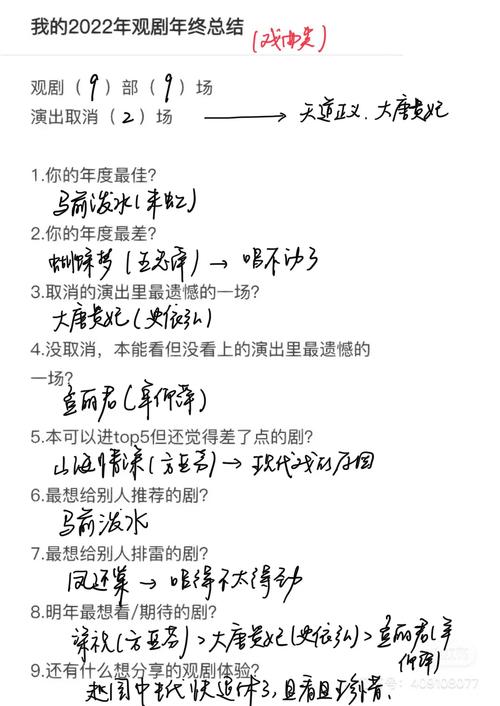 我的2022年观剧年终总结 (戏曲类)
观剧（9）部（9）场
演出取消（2）场 → 天道正义、大唐贵妃
1.你的年度最佳?
马前泼水(朱虹)
2.你的年度最差?
蝴蝶梦(王志萍) → 唱不动了
3.取消的演出里最遗憾的一场?
大唐贵妃(史依弘)
4.没取消，本能看但没看上的演出里最遗憾的
一场?
孟丽君(章仰萍)
5.本可以进top5但还觉得差了点的剧?
山海情深(方亚芬) → 现代戏的原因
6.最想给别人推荐的剧?
马前泼水
7.最想给别人排雷的剧?
凤还巢 → 唱得不太得劲
8.明年最想看/期待的剧?
梁祝(方亚芬) > 大唐贵妃(史依弘) > 孟丽君(章
仰萍)
9.还有什么想分享的观剧体验?
越团中生代快退休了,且看且珍惜.
号: 409108077